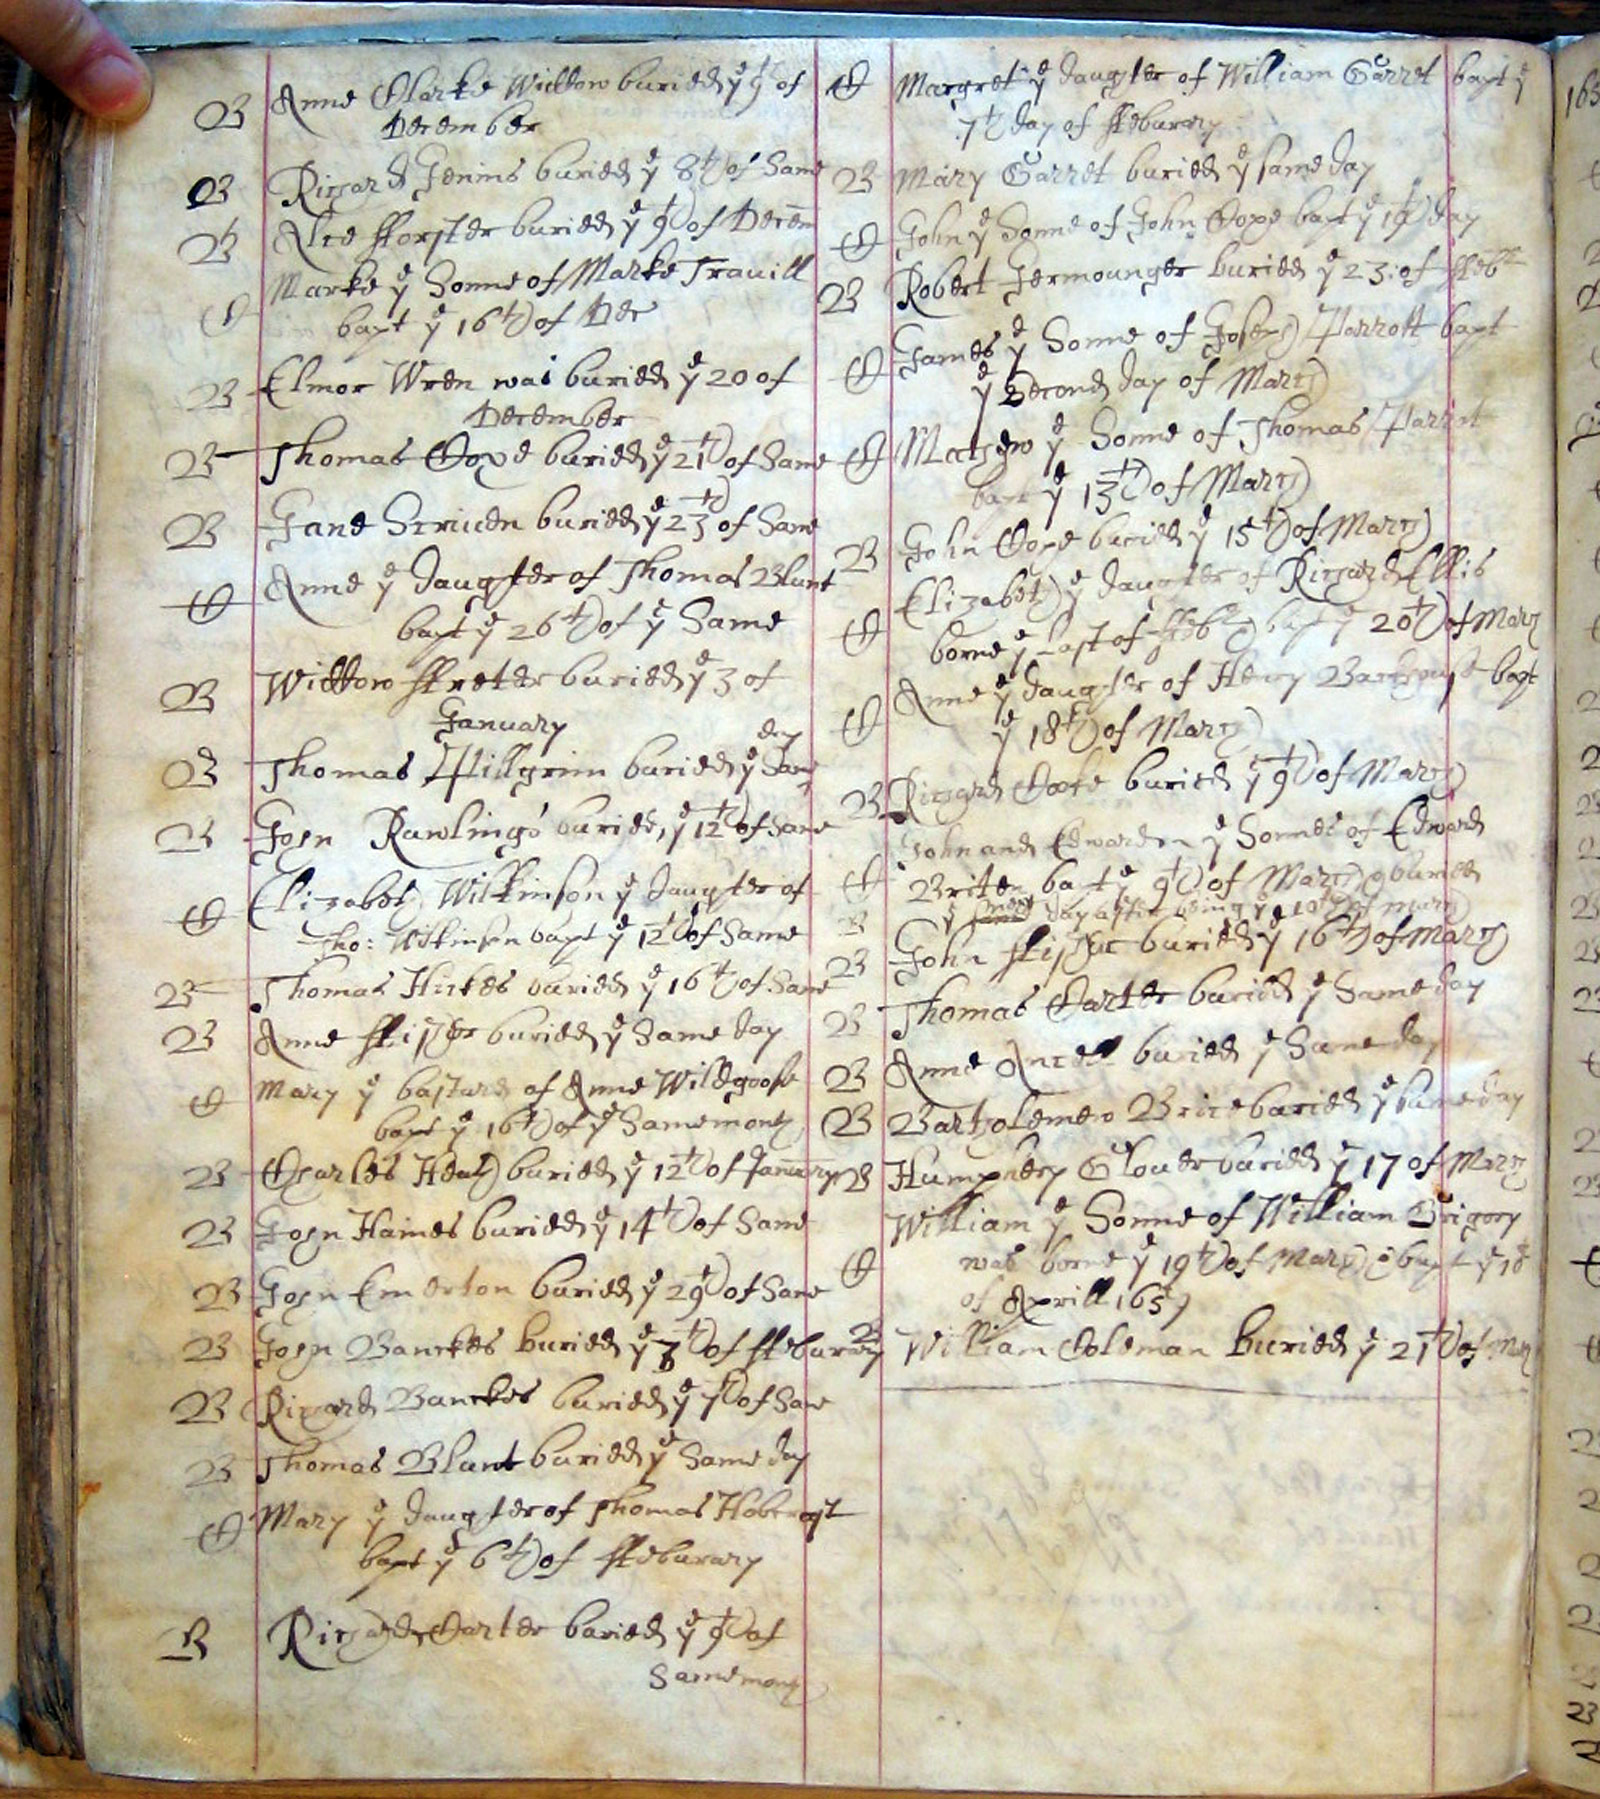 B Anne Clarke Widdow buried ye 9 of
December
B Richard Jenins buried ye 8th of Same
B Alce fforster buried ye 9th of Decem
C Marke ye Sonne of Marke Travill
bapt ye 16th of Dec
B Elinor Wren was buried ye 20 of
December
B Thomas Coxe buried ye 21th of Same
B Jane Scriuen buried ye 23th of Same
C Anne ye daughter of Thomas Blunt
bapt ye 26th of ye Same
B Widdow buried ye 3 of
January
B Thomas Pillgrim buried ye Same day
B John Rawlings buried ye 12th of Same
C Elizabeth Wilkinson ye daughter of
Tho: Wilkinson bapt ye 12th of Same
B Thomas Hickes buried ye 16th of Same
B Anne ffisher buried ye Same day
C Mary ye bastard of Anne Wildgoose
bapt ye 16th of ye Same month
B Charles Heath buried ye 12th of January
B John Haines buried ye 14th of Same
B John Emerton buried ye 29th of Same
B John Banckes buried ye of ffeburary
B Richard Banckes buried ye 7th of Same
B Thomas Blunt buried ye Same day
C Mary ye daughter of Thomas
bapt ye 6th of ffeburary
B Richard Carter buried ye 9th of
Same month
C Margret ye daughter of William Garret bapt ye
7th day of ffeburary
B Mary Garret buried ye same day
C John ye Sonne of John Coxe bapt ye 19th day
B Robert Jermounger buried ye 23: of ffebr
C James ye Sonne of Joseph Parrott bapt
ye Second day of March
C Mathew ye Sonne of Thomas Parret
bapt ye 13th of March
B John Coxe buried ye 15th of March
C Elizabeth ye daughter of Richard Ellis
borne ye Last of ffebr bapt ye 20th of March
C Anne ye daughter of Henry bapt
ye 18th of March
B Richard Cooke buried ye 9th of March
John and Edward ye Sonnes of Edward
C Briten bapt ye 9th of March & buried
B ye next day after being ye 10th of march
B John ffisher buried ye 16th of march
B Thomas Carter buried ye Same day
B Anne Ancell buried ye Same day
B Bartholemew Brice buried ye same day
B Humphery Glover buried ye 17 of March
William ye Sonne of William Grigory
C was borne ye 19th of March & bapt ye 18
of Aprill 1657
B William Coleman buried ye 21th of